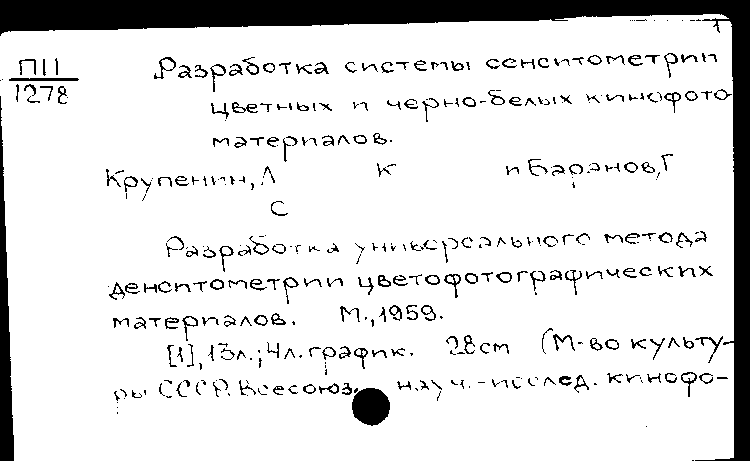 1
П11
1278
Разработка системы сенситометрии
цветных и черно-белых кинофото-
материалов.
Крупенин, Л К и Баранов, Г
С
Разработка универсального метода
денситометрии цветофотографических
материалов. М., 1959.
[1], 13л.; 4л. график. 28см (М-во культу-
ры СССР. Всесоюз. науч.-исслед. кинофо-